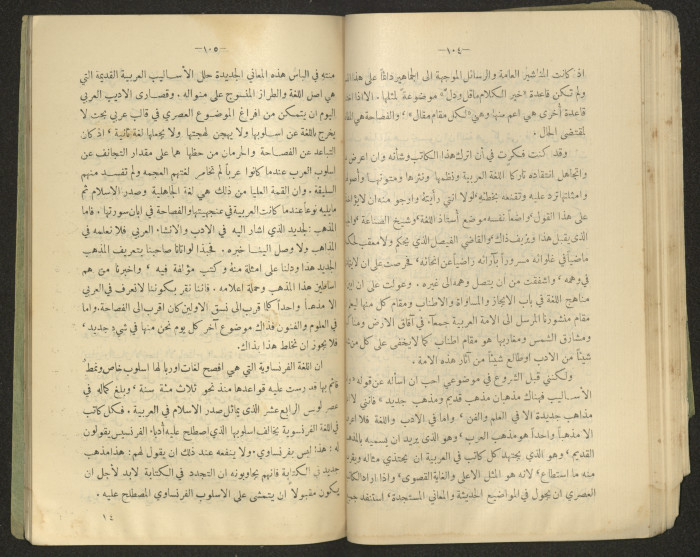 —١٠٤—
اذ كانت المناشير العامة والرسائل الموجهة الى الجماهير دائماً على هذا
ولم تكن قاعدة «خير الكلام ماقل ودل» موضوعة لمثلها . الا اذا
قاعدة أخرى هي اعم منها وهي «لكل مقام مقال» ، والفصاحة هي
لمقتضى الحال .
وقد كنت فكرت في أن اترك هذا الكاتب وشأنه وان اعرض
واتجاهل انتقاده تاركاً اللغة العربية ونظمها ونثرها ومتونها
وامثلتها ترد عليه وتقنعه بخطئه لولا انني رأيته وارجو منه ان لا
على هذا القول واضعاً نفسه موضع أستاذ اللغة وشيخ الصناعة
الذي يقبل هذا ويزيف ذاك والقاضي الفيصل الذي يحكم ولا معقب
ماضياً في غلوائه مسروراً بآرائه راضياً عن انحائه فحرصت على ان
في وهمه ، واشفقت من أن يتصل وهمه الى غيره . وعولت على ان
مناهج اللغة في باب الايجاز والمساواة والاطناب ومقام كل منها
مقام منشورنا المرسل الى الامة العربية جمعآء في آفاق الارض
ومشارق الشمس ومغاربها هو مقام اطناب كما لا يخفى على كل من
شيئاً من الادب او طالع شيئاً من آثار هذه الامة .
ولكنني قبل الشروع في موضوعي احب ان اسأله عن قوله
الأساليب فهناك مذهبان مذهب قديم ومذهب جديد ، فانني لا
مذاهب جديدة الا في العلم والفن ، واما في الادب واللغة فلا
الا مذهباً واحداً هو مذهب العرب ، وهو الذي يريد ان يسميه
القديم ، وهو الذي يجتهد كل كاتب في العربية ان يحتذي مثاله
منه ما استطاع ، لانه هو المثل الاعلى والغاية القصوى ، واذا اراد
العصري ان يجول في المواضيع الحديثة والمعاني المستجدة ، استنفد
—١٠٥—
منته في الباس هذه المعاني الجديدة حلل الأساليب العربية القديمة التي
هي اصل اللغة والطراز المنسوج على منواله . وقصارى الاديب العربي
اليوم ان يتمكن من افراغ الموضوع العصري في قالب عربي بحت لا
يخرج باللغة عن اسلوبها ولا يهجن لهجتها ولا يجعلها لغة ثانية ، اذ كان
التباعد عن الفصاحة والحرمان من حظها هما على مقدار التجانف عن
اسلوب العرب عندما كانوا عرباً لم تخامر لغتهم العجمه ولم تفسد منهم
السليقة . وان القمة العليا من ذلك هي لغة الجاهلية وصدر الاسلام ثم
مايليه نوعاً عندما كانت العربية في عنجهيتها والفصاحة في ابان سورتها . فاما
المذهب الجديد الذي اشار اليه في الادب والانشاء العربي فلا نعلمه في
المذاهب ولا وصل الينا خبره . فحبذا لو اتانا صاحبنا بتعريف المذهب
الجديد هذا ودلنا على امثلة منه وكتب مؤلفة فيه ، واخبرنا من هم
اساطين هذا المذهب وحملة اعلامه . فاننا نقر بكوننا لا نعرف في العربي
الا مذهباً واحداً كلما قرب الى نسق الاولين كان اقرب الى الفصاحة. واما
في العلوم والفنون فذاك موضوع آخر كل يوم نحن منها في شيء جديد ،
فلا يجوز ان نخلط هذا بذاك.
ان اللغة الفرنساوية التي هي افصح لغات اوربا لها اسلوب خاص ونمط
قائم بها قد رست عليه قواعدها منذ نحو ثلاث مئة سنة ، وبلغ كماله في
عصر لويس الرابع عشر الذي يماثل صدر الاسلام في العربية . فكل كاتب
في اللغة الفرنسوية يخالف اسلوبها الذي اصطلح عليه أدباء الفرنسيس يقولون
له : هذا ليس بفرنساوي . ولا ينفعه عند ذلك ان يقول لهم : هذا مذهب
جديد في الكتابة فانهم يجاوبونه ان التجدد في الكتابة لابد لأجل ان
يكون مقبولاً ان يتمشى على الاسلوب الفرنساوي المصطلح عليه .
١٤